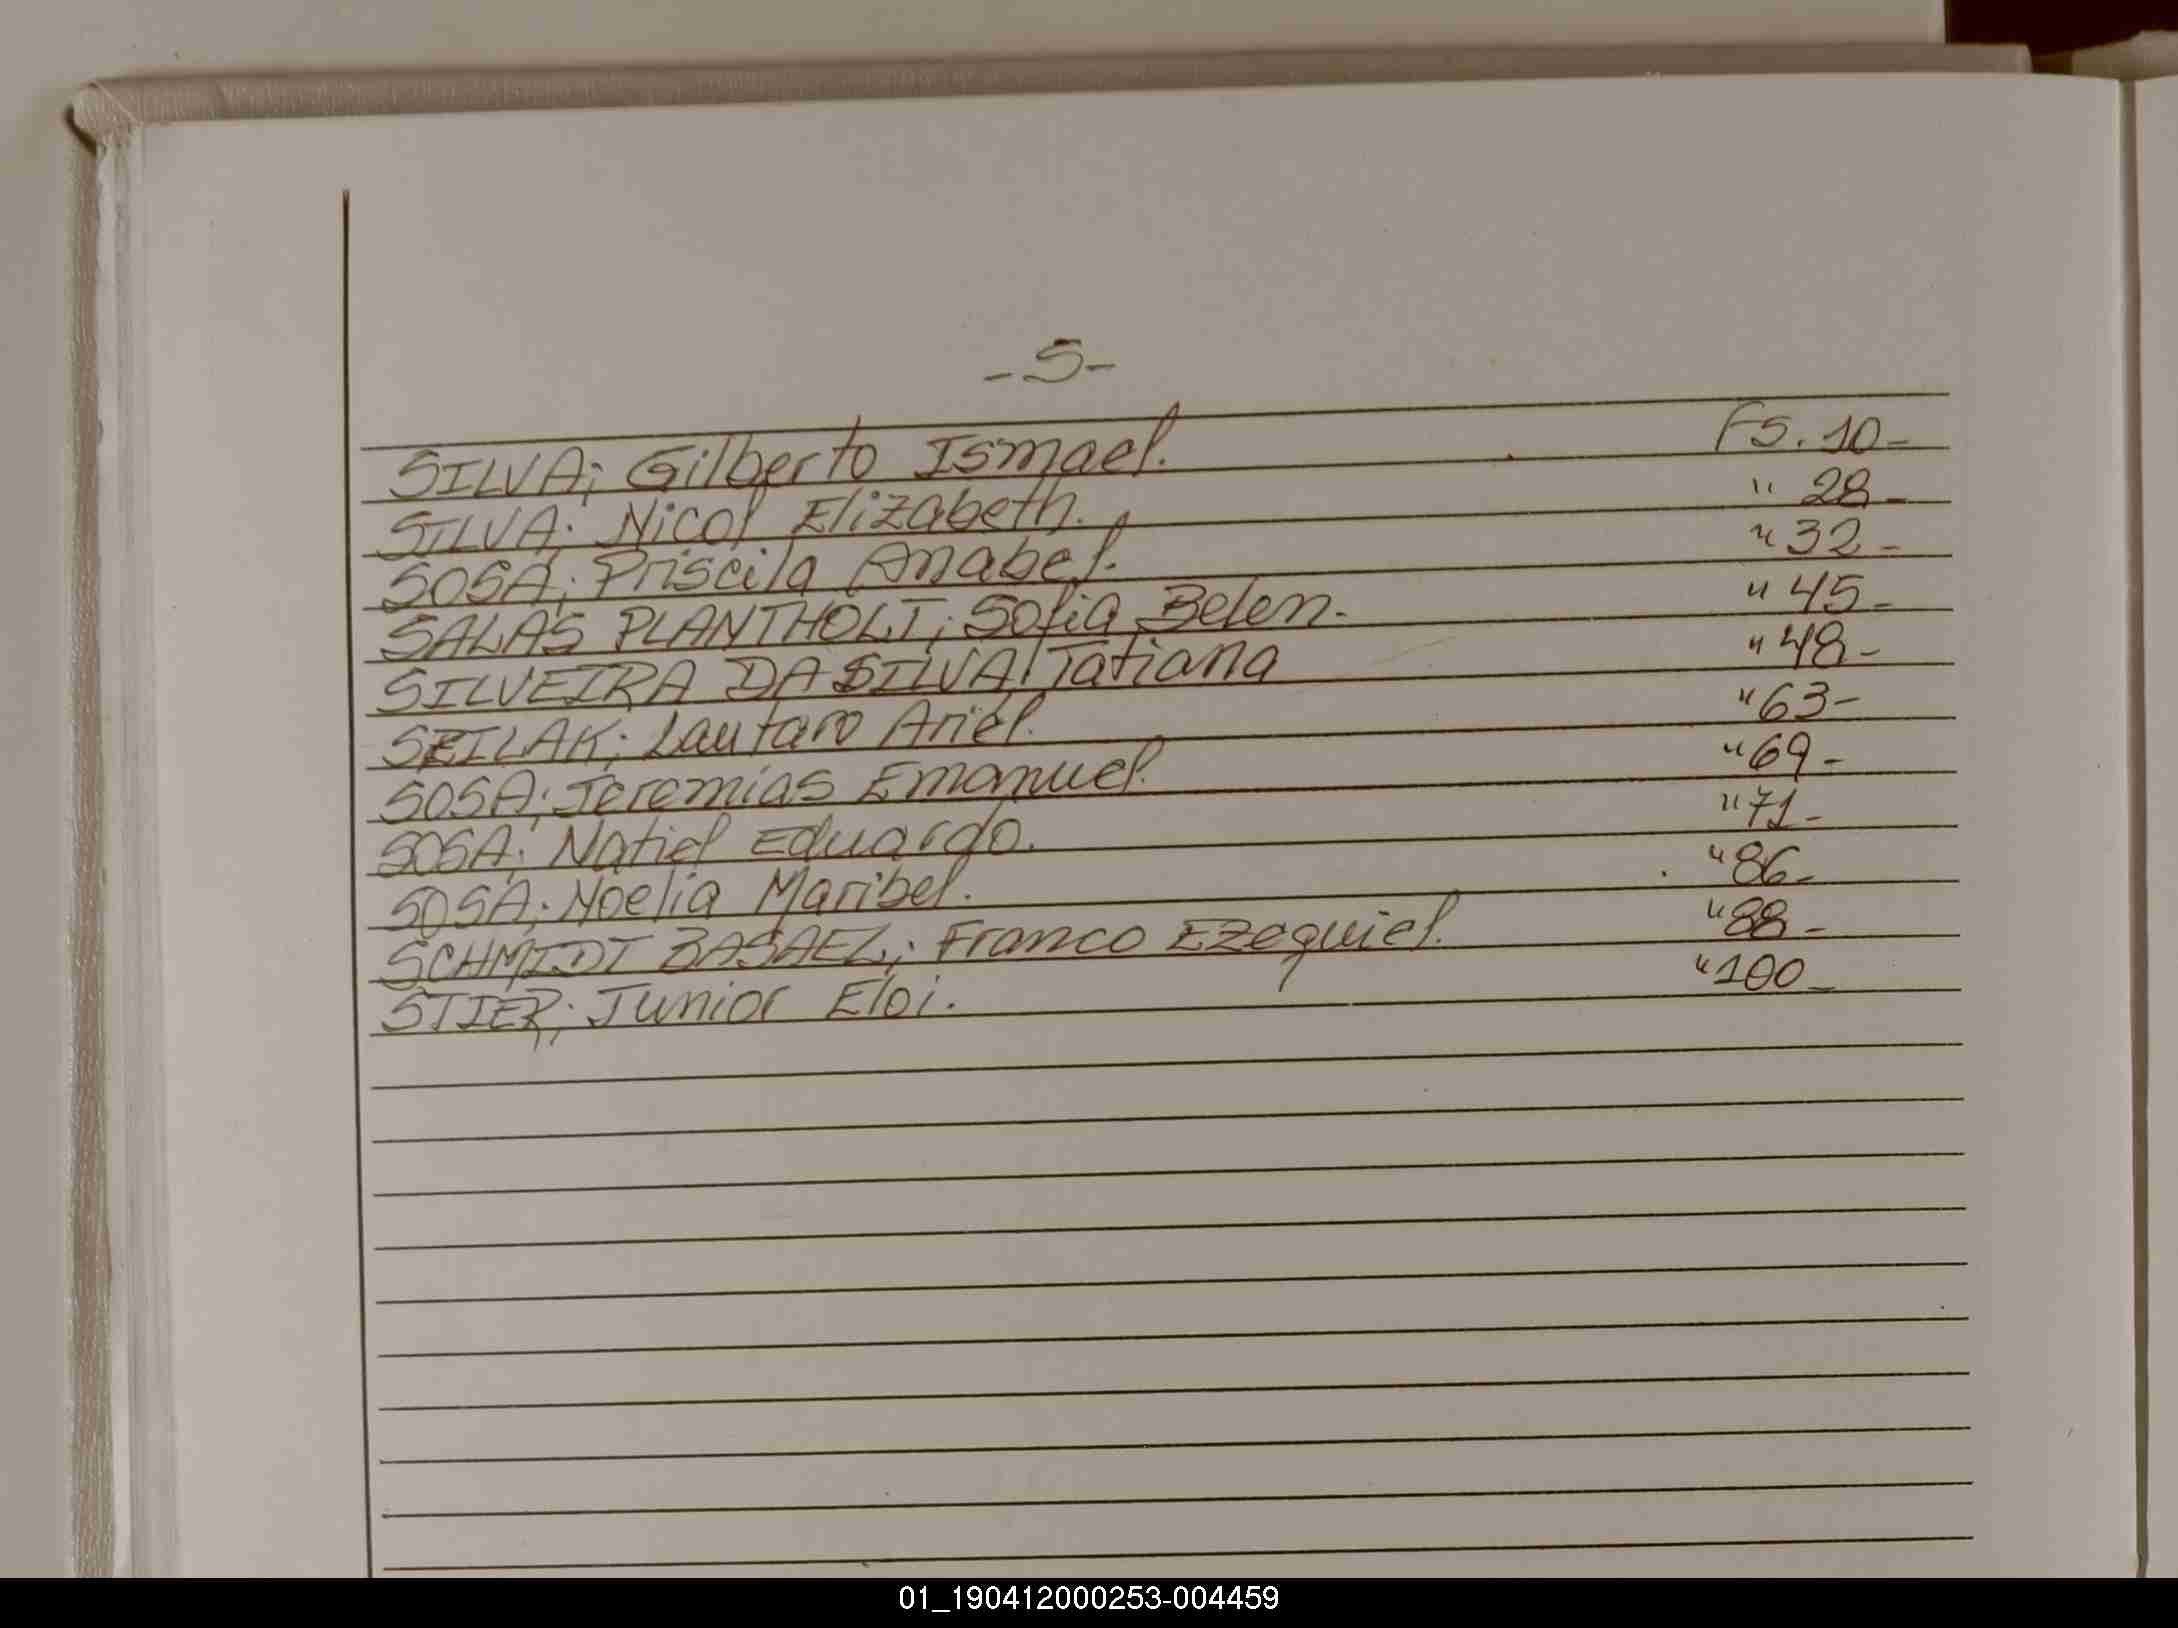 -S-
SILVA; Gilberto Ismael. FS. 10-
SILVA; Nicol Elizabeth. " 28-
SOSA; Priscila Anabel. " 32-
SALAS PLANTHOLT; Sofia Belen- " 45-
SILVEIRA DA SILVA; Tatiana " 48-
SEILAK; Lautaro Ariel. " 63-
SOSA; Jeremias Emanuel. " 69-
SOSA; Natiel Eduardo. " 71-
SOSA; Noelia Maribel. " 86-
SCHMIDT BASAEZ; Franco Ezequiel. " 88-
STIER; Junior Eloi. " 100-
01_190412000253-004459